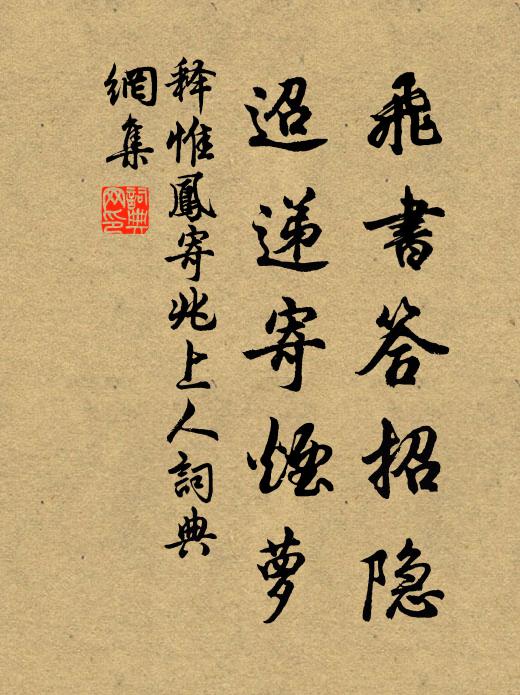 飛書答招隐
迢递寄煙萝
释惟鳳寄兆上人詞典
網集
詞典
网印